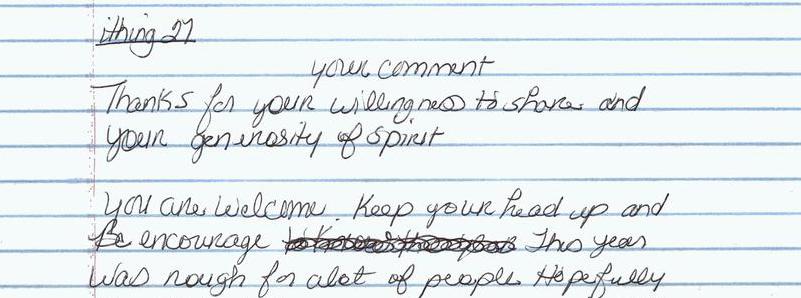 ithing 27
your comment
Thanks for your willingness to share and
your generosity of spirit
you are welcome. Keep your head up and
Be encourage This year
was rough for alot of people Hopefully